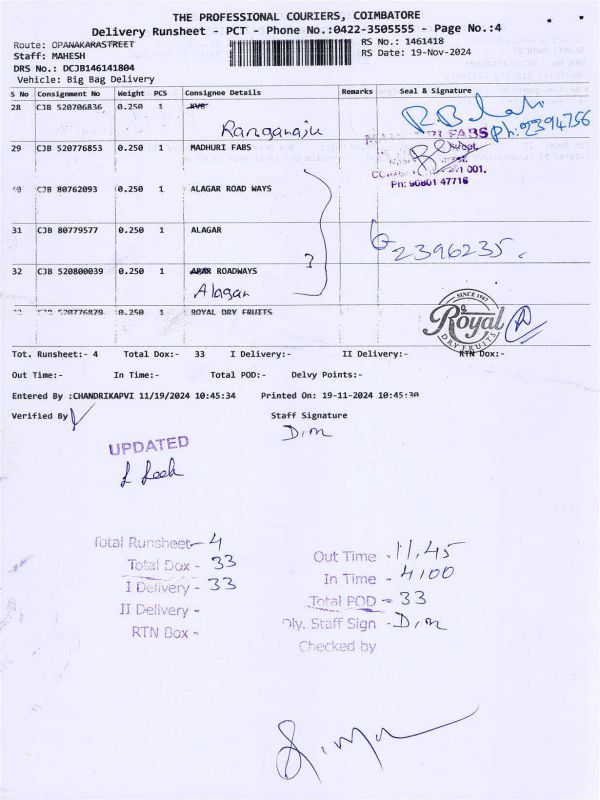 THE PROFESSIONAL COURIERS, COIMBATORE
Delivery Runsheet - PCT - Phone No.:0422-3505555 - Page No.:4
Route: OPANAKARASTREET
RS No.: 1461418
Staff: MAHESH
RS Date: 19-Nov-2024
DRS No.: DCJB146141804
Vehicle: Big Bag Delivery
S No Consignment No Weight PCS Consignee Details Remarks Seal & Signature
28 CJB 520706836 0.250 1
Ranganaju
Ph: 2394756
29 CJB 520776853 0.250 1 MADHURI FABS
FABS
001.
Ph: 90801 47716
CJB 80762093 0.250 1 ALAGAR ROAD WAYS
31 CJB 80779577 0.250 1 ALAGAR
2396235.
32 CJB 520800039 0.250 1 ROADWAYS
Alagar
CJB 520776879 0.250 1 ROYAL DRY FRUITS
SINCE 1987
Royal
DRY FRUITS
Tot. Runsheet:- 4 Total Dox:- 33 I Delivery:- II Delivery:- RTN Dox:-
Out Time:- In Time:- Total POD:- Delvy Points:-
Entered By :CHANDRIKAPVI 11/19/2024 10:45:34 Printed On: 19-11-2024 10:45:30
Verified By
Staff Signature
UPDATED
Total Runsheet - 4
Total Dox - 33
I Delivery - 33
II Delivery -
RTN Dox -
Out Time - 11.45
In Time - 4100
Total POD - 33
Dly. Staff Sign -
Checked by